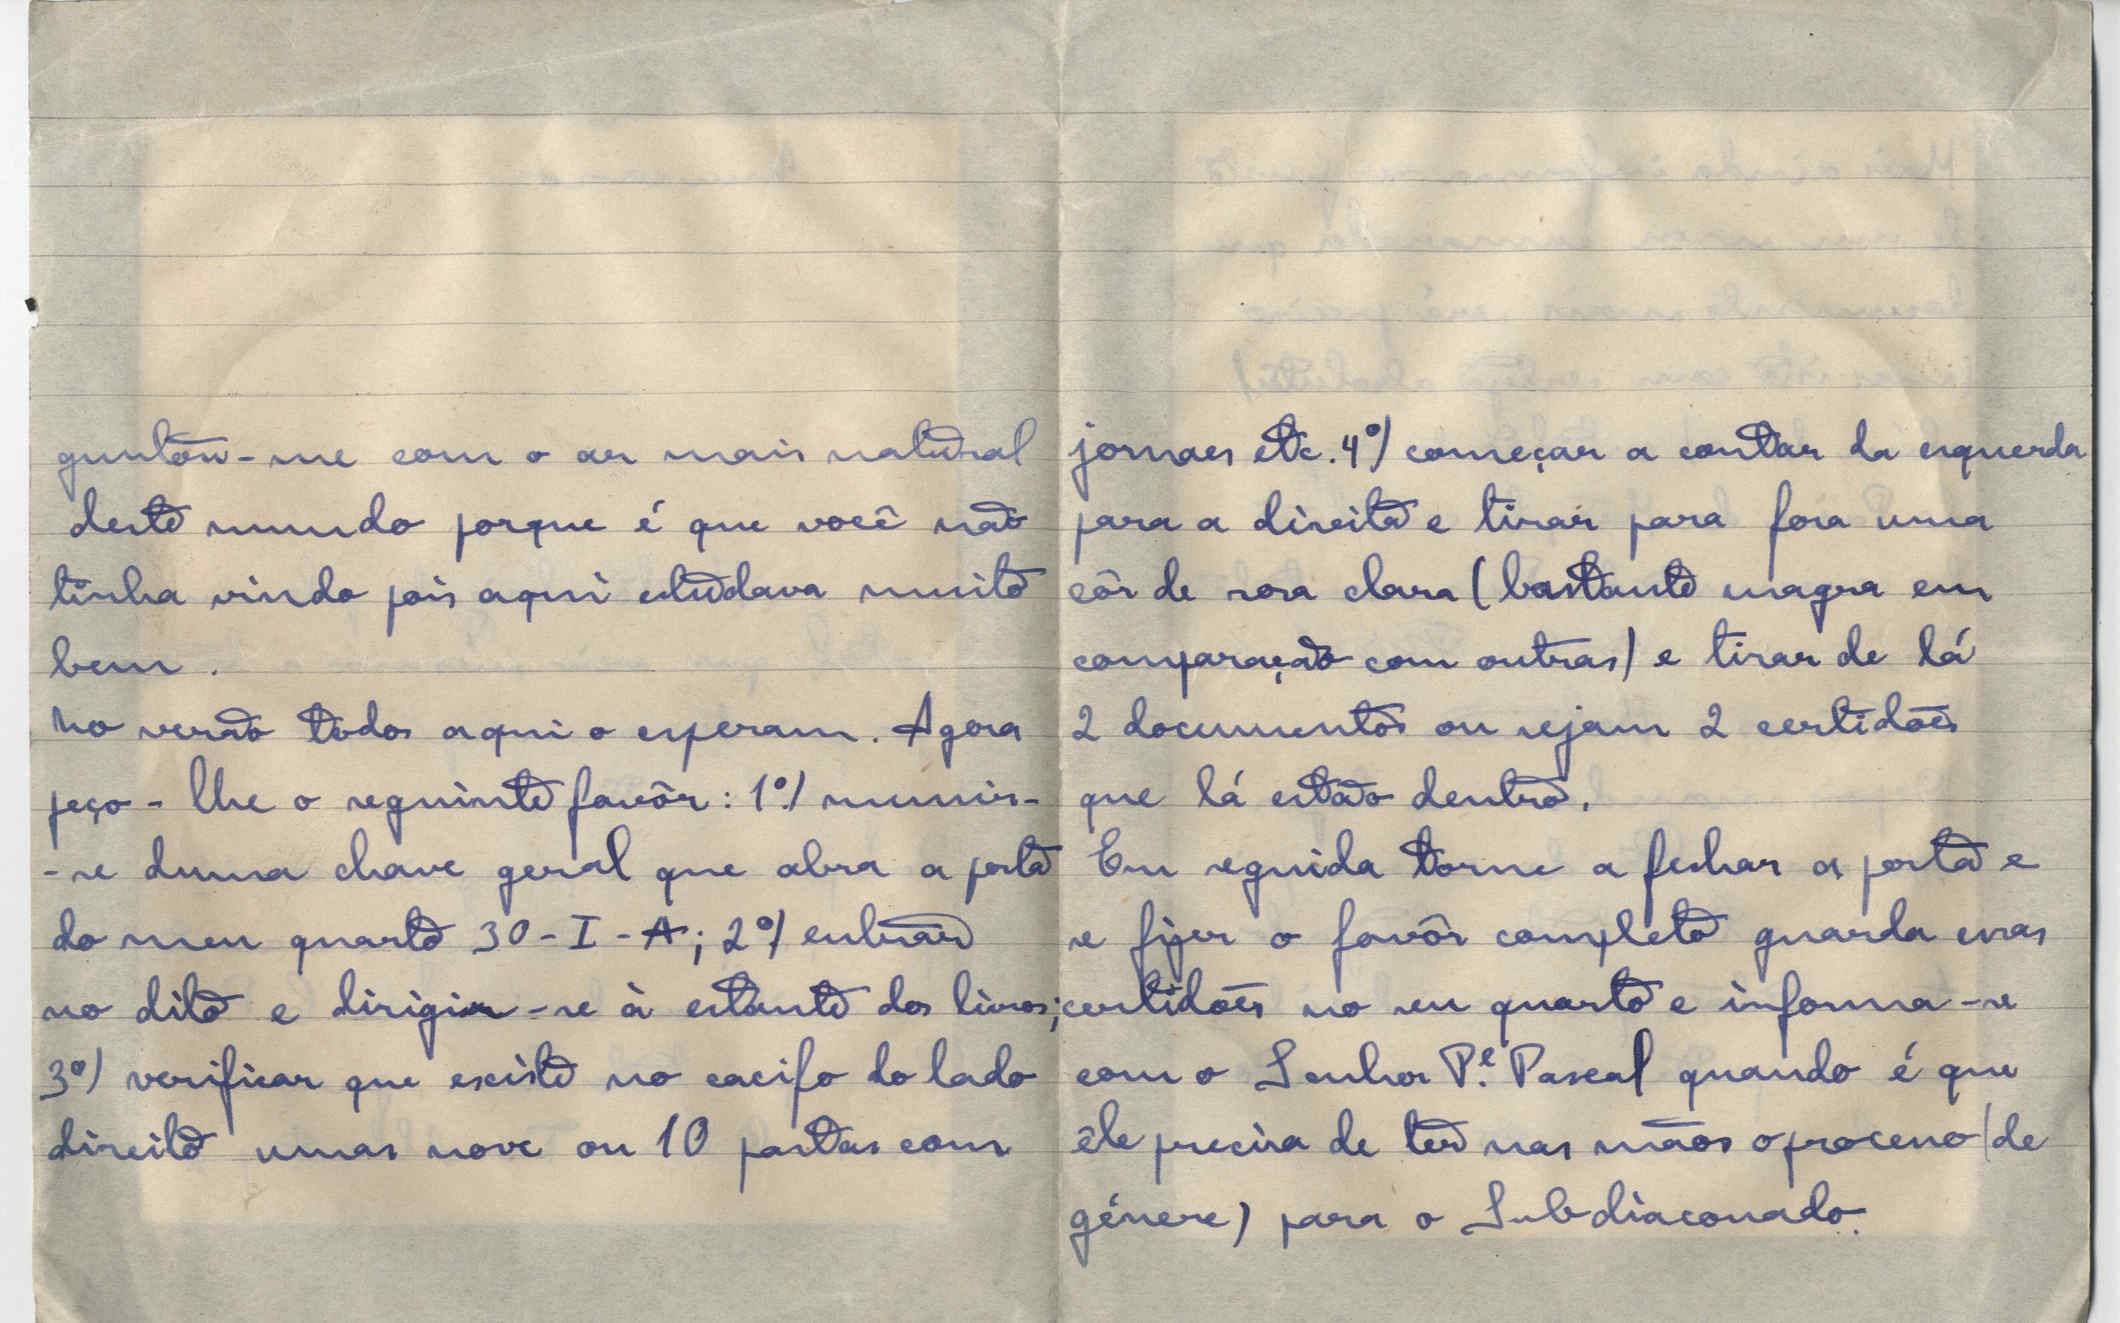 guntou-me com o ar mais natural
deste mundo porque é que você não
tinha vindo pois aqui estudava muito
bem.
No verão todos aqui o esperam. Agora
peço-lhe o seguinte favôr: 1º) munir-
-se duma chave geral que abra a porta
do meu quarto 30-I-A; 2º) entrar
no dito e dirigir-se à estante dos livros;
3º) verificar que existe no cacifo do lado
direito umas nove ou 10 pastas com
jornaes etc. 4º) começar a contar da esquerda
para a direita e tirar para fora uma
côr de rosa clara (bastante magra em
comparação com outras) e tirar de lá
2 documentos ou sejam 2 certidões
que lá estão dentro.
Em seguida torne a fechar a porta e
se fizer o favôr completo guarda essas
certidões no seu quarto e informa-se
com o Senhor P.e Pascal quando é que
êle precisa de ter nas mãos o processo (de
génere) para o Subdiaconado.